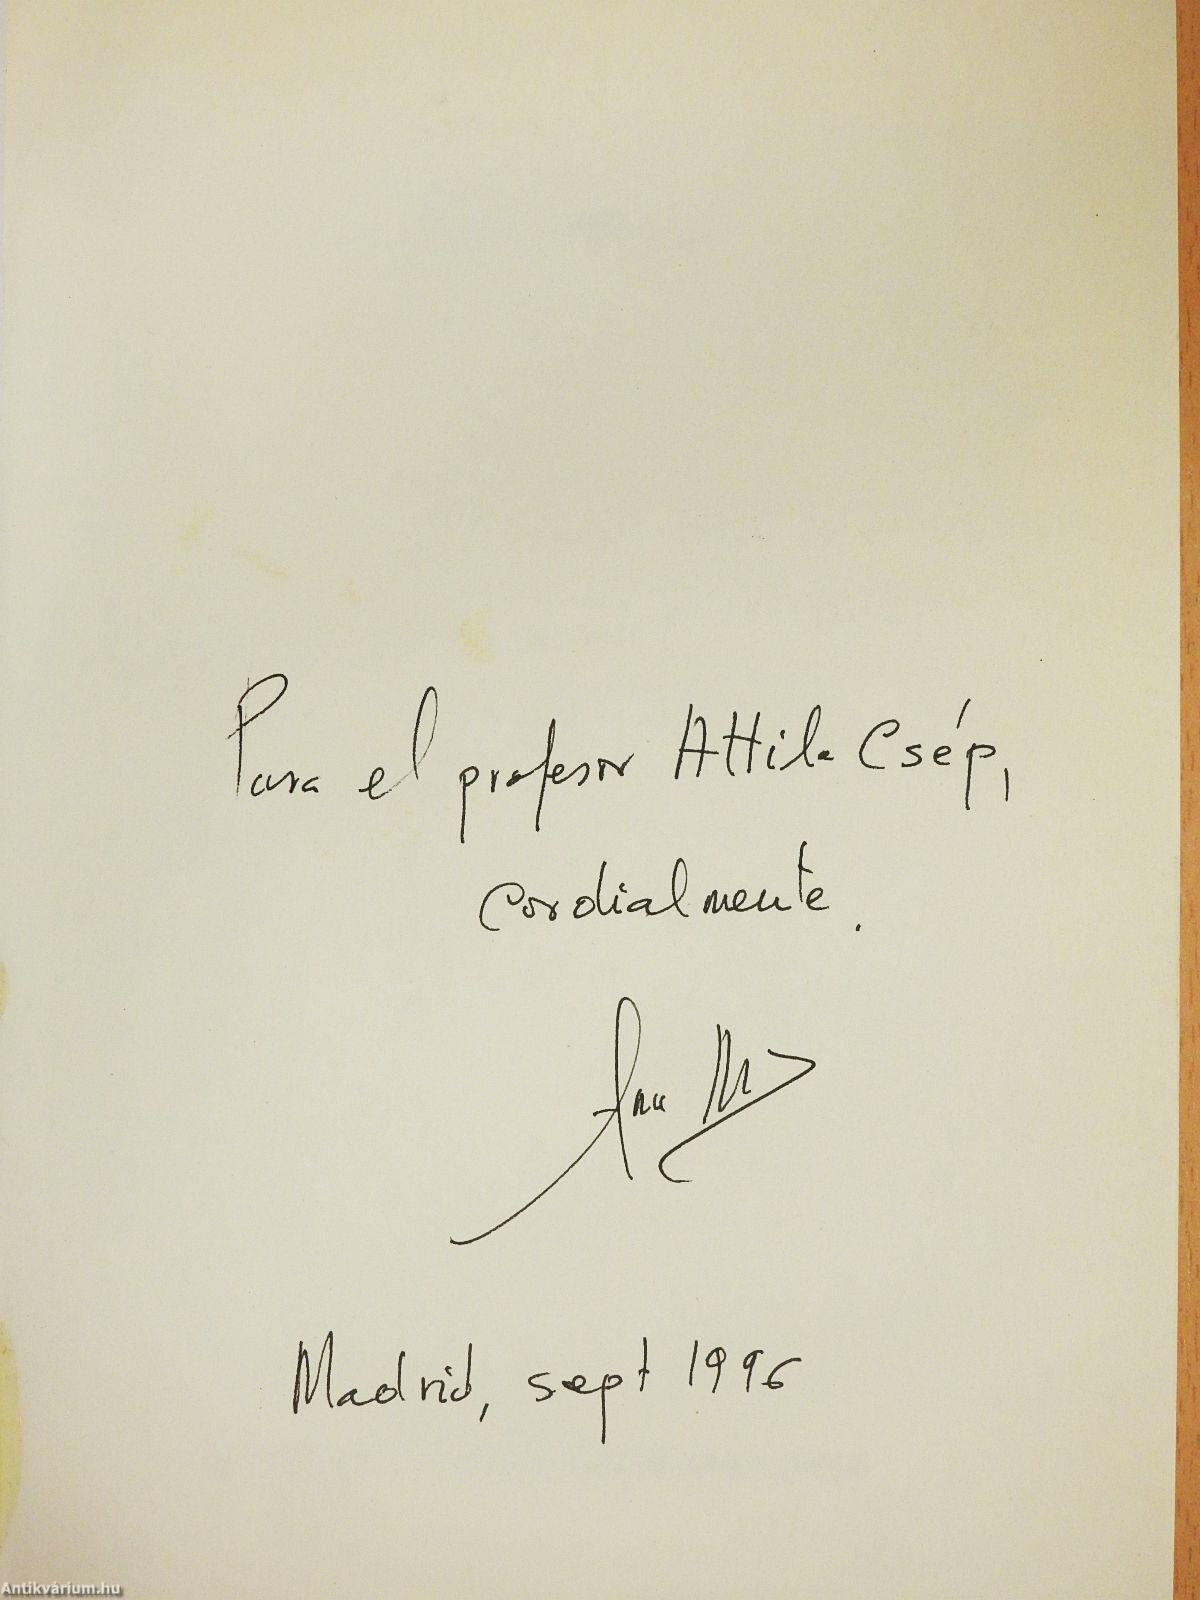 Para el profesor Attila Csép,
cordialmente.
Ana M
Madrid, sept 1996
Antikvárium.hu